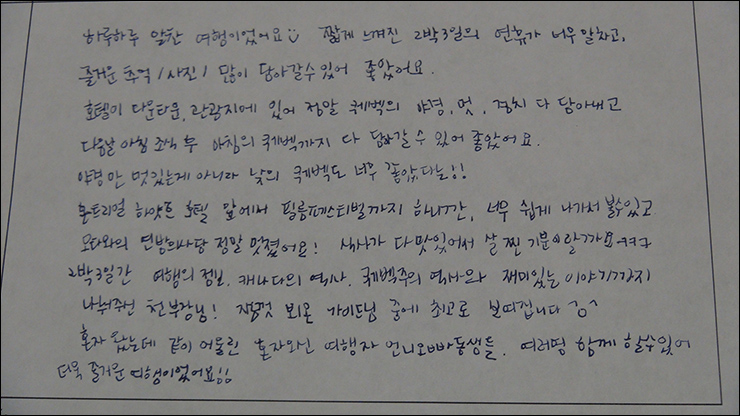 하루하루 알찬 여행이었어요 짧게 느껴진 2박3일의 연휴가 너무 알차고,
즐거운 추억/사진/ 많이 담아갈수있어 좋았어요.
호텔이 다운타운, 관광지에 있어 정말 퀘벡의 야경, 멋, 경치 다 담아내고
다음날 아침 조식 후 아침의 퀘벡까지 다 담아갈 수 있어 좋았어요.
야경만 멋있는게 아니라 낮의 퀘벡도 너무 좋았다는!!
몬트리얼 하얏트 호텔 앞에서 필름페스티벌까지 하니간, 너무 쉽게 나가서 볼수있고
오타와의 연방의사당 정말 멋졌어요! 식사가 다 맛있어서 살 찐 기분이랄까요ㅋㅋㅋ
2박3일간 여행의 정보, 캐나다의 역사, 퀘벡주의 역사와 재미있는 이야기까지
나눠주신 천부장님! 뵈온 가이드님 중에 최고로 멋쪄십니다 ^o^
혼자 왔는데 같이 어울린 혼자오신 여행자 언니오빠동생들, 여러명 함께 할수있어
더욱 즐거운 여행이었어요!!